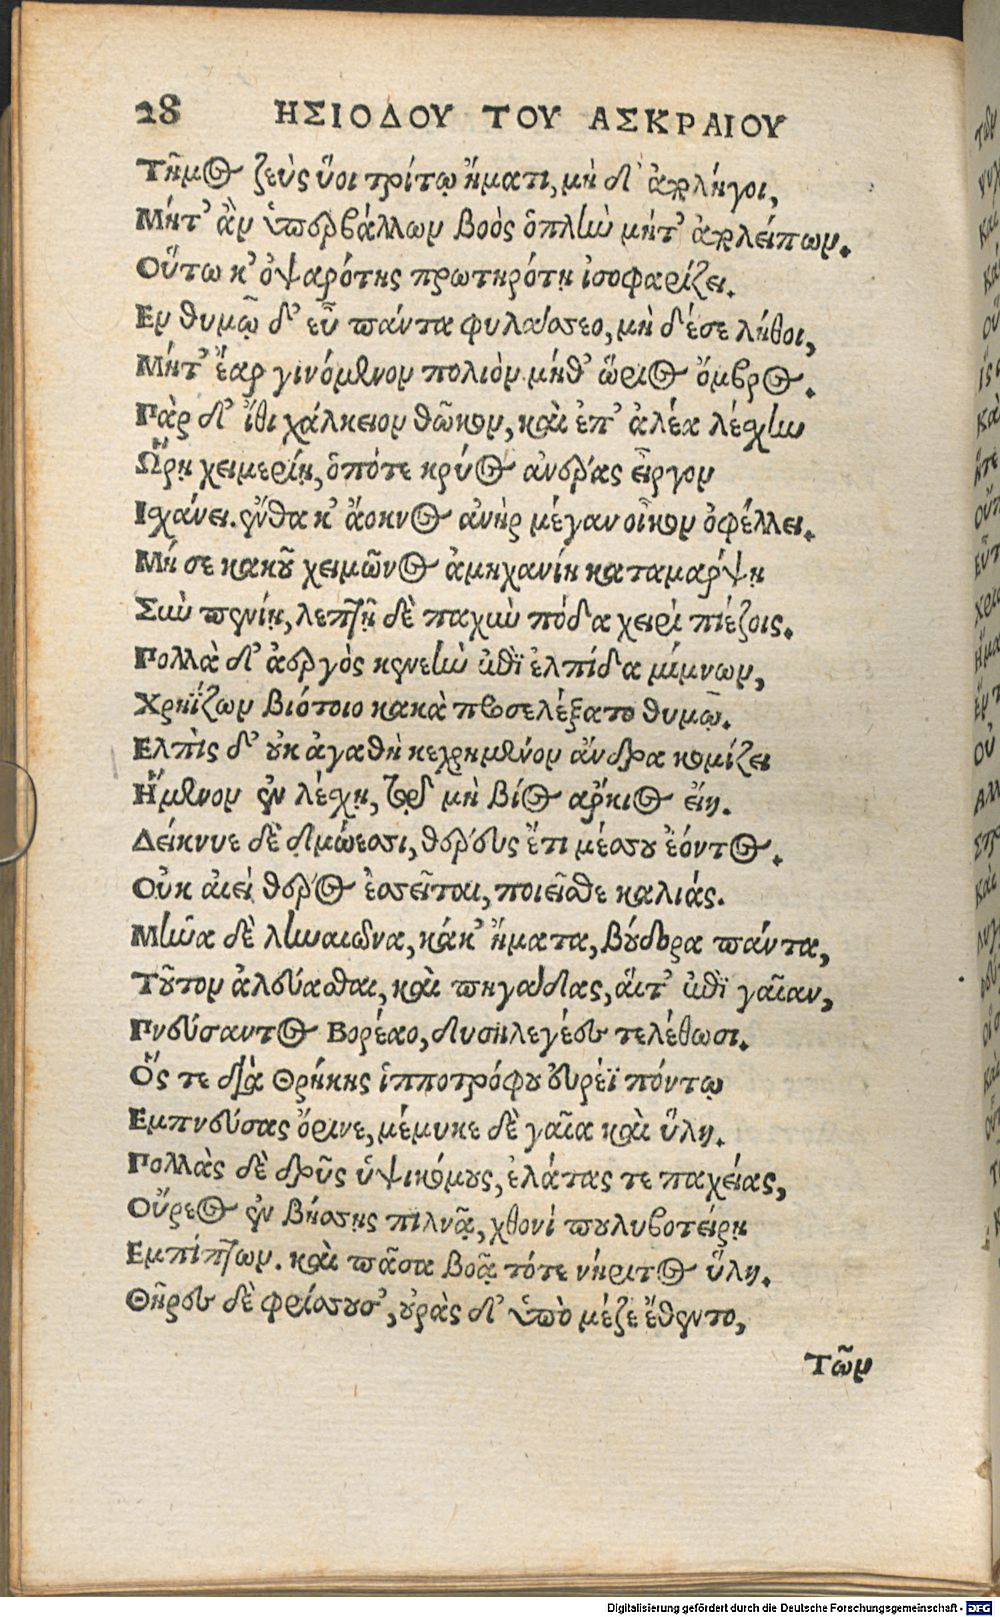 28 ΗΣΙΟΔΟΥ ΤΟΥ ΑΣΚΡΑΙΟΥ
Τῆμος ζεὺς ὕοι τρίτῳ ἤματι, μὴ δ᾽ ἀπολήγοι,
Μήτ᾽ ἂν ὑπερβάλλων βοὸς ὁπλὴν μήτ᾽ ἀπολείπων.
Οὕτω κ᾽ ὀψαρότης πρωτηρότῃ ἰσοφαρίζει.
Εν θυμῷ δ᾽ εὖ πάντα φυλάσσεο, μὴ δέ σε λήθοι,
Μήτ᾽ ἔαρ γινόμενον πολιὸν μήθ᾽ ὥριος ὄμβρος.
Πὰρ δ᾽ ἴθι χάλκειον θῶκον, καὶ ἐπ᾽ ἀλέα λέσχην
Ὥρῃ χειμερίῃ, ὁπότε κρύος ἀνέρας εἶργον
Ισχάνει. ἔνθα κ᾽ ἄοκνος ἀνὴρ μέγαν οἶκον ὀφέλλει.
Μή σε κακοῦ χειμῶνος ἀμηχανίη καταμάρψῃ
Σὺν πενίῃ, λεπτῇ δὲ παχὺν πόδα χειρὶ πιέζοις.
Πολλὰ δ᾽ ἀεργὸς κενεὴν ἐπὶ ἐλπίδα μίμνων,
Χρηΐζων βιότοιο κακὰ προσελέξατο θυμῷ.
Ελπὶς δ᾽ οὐκ ἀγαθὴ κεχρημένον ἄνδρα κομίζει
Ἥμενον ἐν λέσχῃ, τῷ μὴ βίος ἄρκιος εἴη.
Δείκνυε δὲ δμώεσσι, θέρους ἔτι μέσσου ἐόντος.
Οὐκ αἰεὶ θέρος ἐσσεῖται, ποιεῖσθε καλιάς.
Μῆνα δὲ ληναιῶνα, κάκ᾽ ἤματα, βούδορα πάντα,
Τοῦτον ἀλεύασθαι, καὶ πηγάδας, αἵτ᾽ ἐπὶ γαῖαν,
Πνεύσαντος Βορέαο, δυσηλεγέες τελέθωσι.
Ὅς τε διὰ Θρῄκης ἱπποτρόφου εὐρέϊ πόντῳ
Εμπνεύσας ὄρινε, μέμυκε δὲ γαῖα καὶ ὕλη.
Πολλὰς δὲ δρῦς ὑψικόμους, ἐλάτας τε παχείας,
Οὔρεος ἐν βήσσῃς πιλνᾷ, χθονὶ πουλυβοτείρῃ
Εμπίπτων. καὶ πᾶσα βοᾷ τότε νήριτος ὕλη.
Θῆρες δὲ φρίσσουσ᾽, οὐρὰς δ᾽ ὑπὸ μέζε᾽ ἔθεντο,
Τῶν
Digitalisierung gefördert durch die Deutsche Forschungsgemeinschaft - DFG